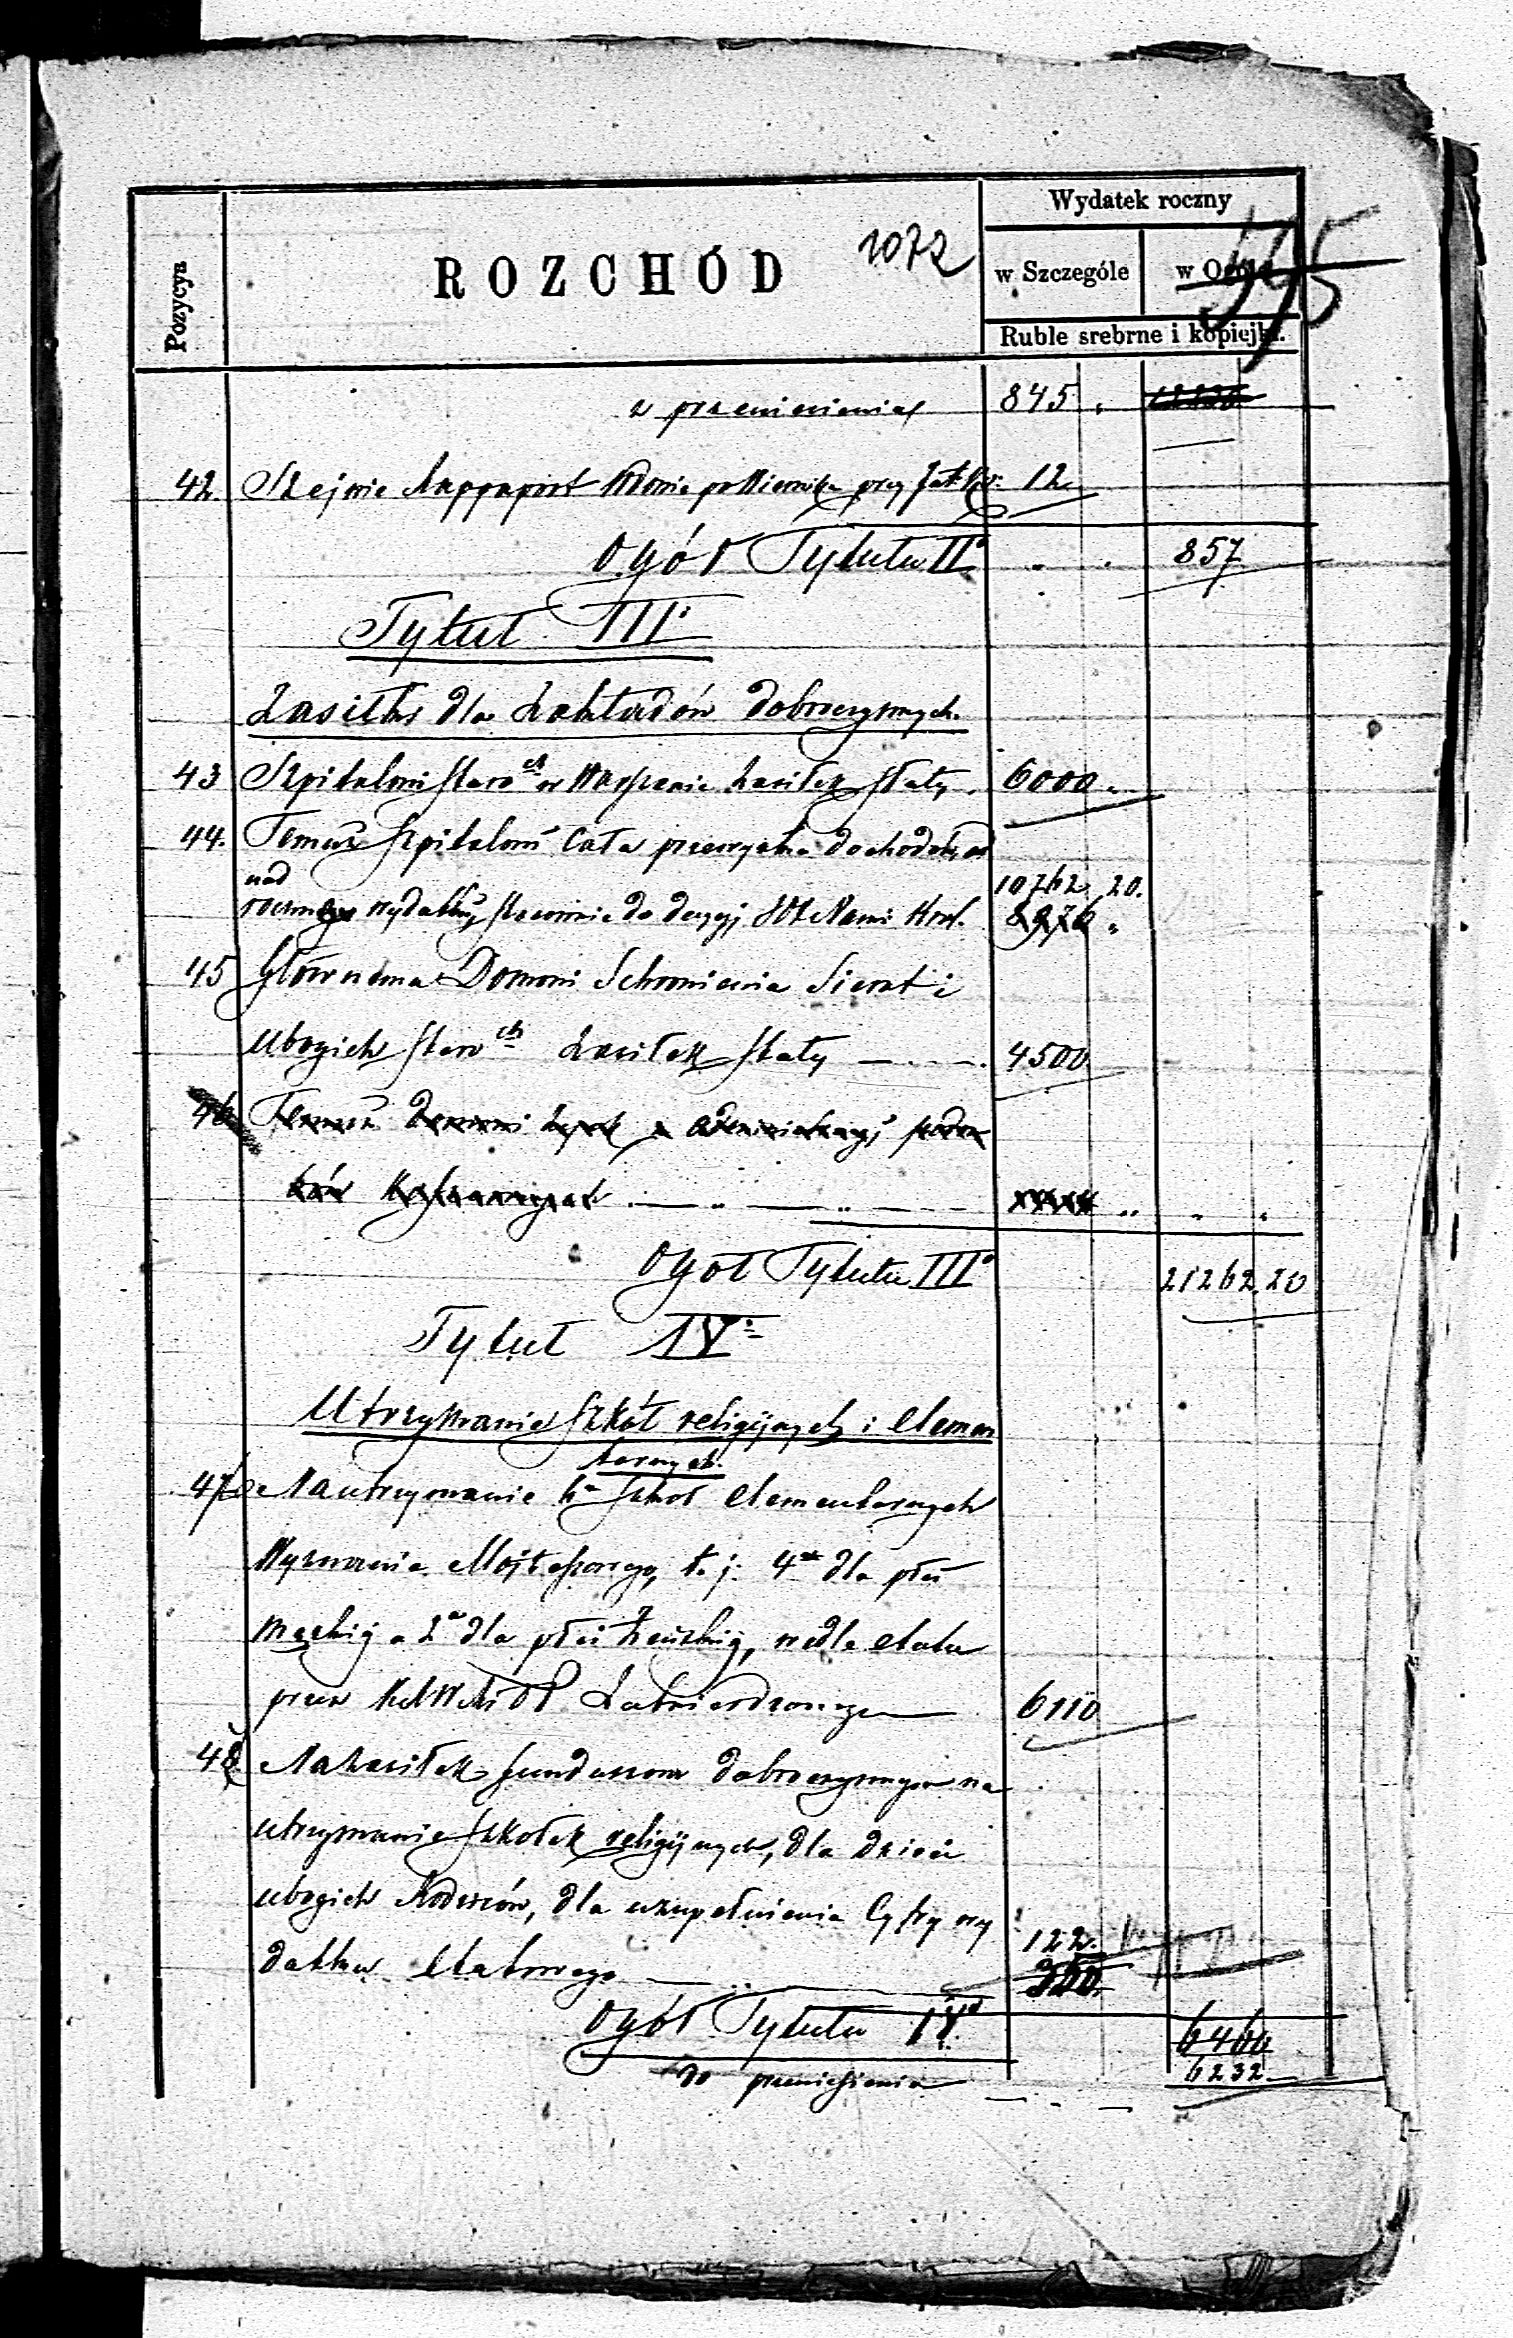 1072
595
Pozycya
ROZCHÓD
Wydatek roczny
w Szczególe
w Ogóle
Ruble srebrne i kopiejki.
z przeniesienia 845 „
42. Szejnie Rappaport Wdowie po 12
Ogół Tytułu II° 857
Tytuł III°
Zasiłki dla Zakładów dobroczynnych.
43 Szpitalowi Staro ch w Warszawie Zasiłek Stały 6000 „
44. Temuż Szpitalowi cała przewyżka dochodów
nad 10762 20.
wydatki, stosownie do decyzji
45 Głównemu Domowi Schronienia Sierot i
Ubogich Staro ch Zasiłek Stały 4500
46 Temuż Domowi
Ogół Tytułu III° 21262.20
Tytuł IV°
Utrzymanie Szkół religijnych i elemen
tarnych.
47 Na utrzymanie 6u Szkół elementarnych
Wyznania Mojżeszowego, t. j. 4ch dla płci
męzkiej a 2u dla płci żeńskiej, wedle etatu
przez Zatwierdzonego 6110
48. Na zasiłek funduszom dobroczynnym na
utrzymanie Szkółek religijnych, dla dzieci
ubogich Rodziców, dla uzupełnienia Cyfry wy
datku etatowego 122.
350.
Ogół Tytułu IV° 6460
6232
do przeniesienia